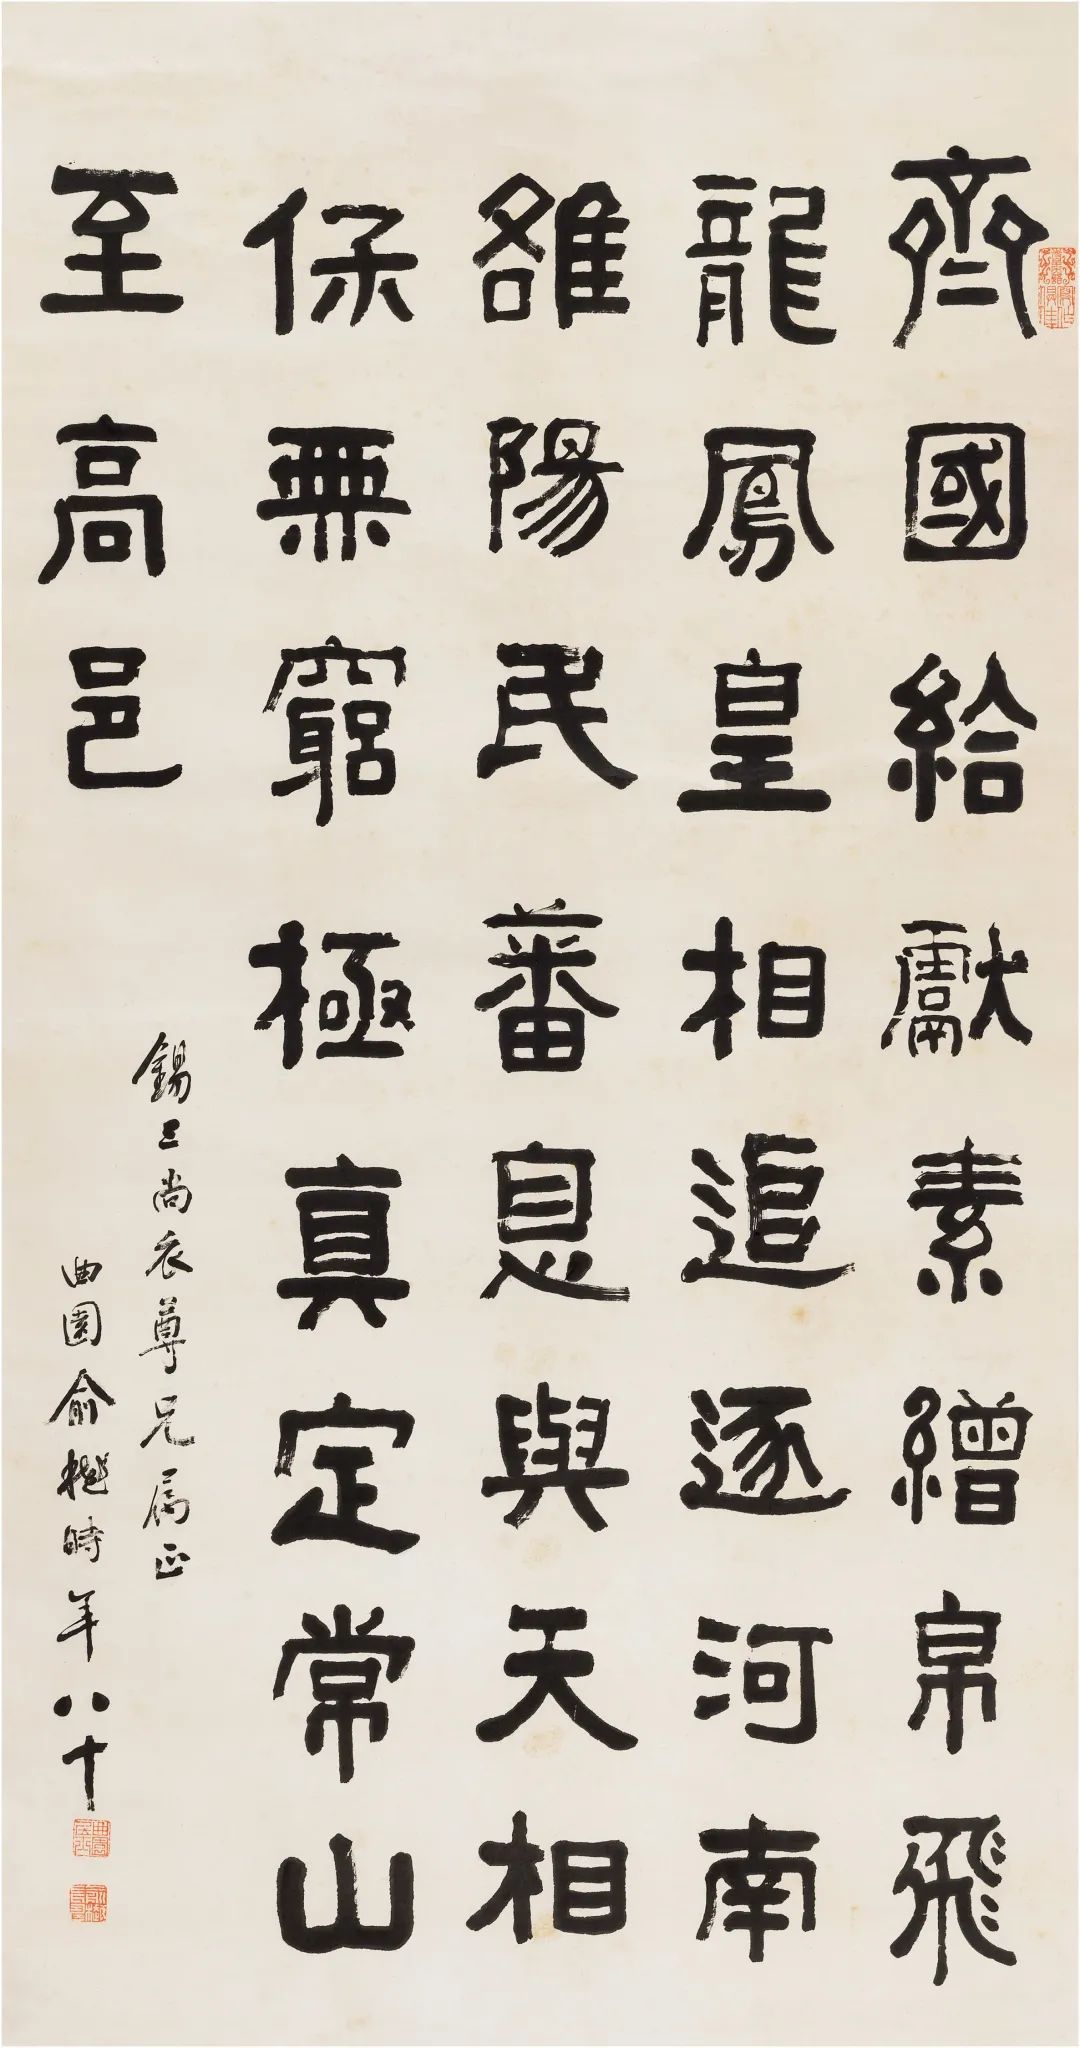 齊國給獻素繒帛飛
龍鳳皇相追逐河南
雒陽民蕃息與天相
保無窮極真定常山
至高邑
錫三尚衣尊兄屬正
曲園俞樾時年八十